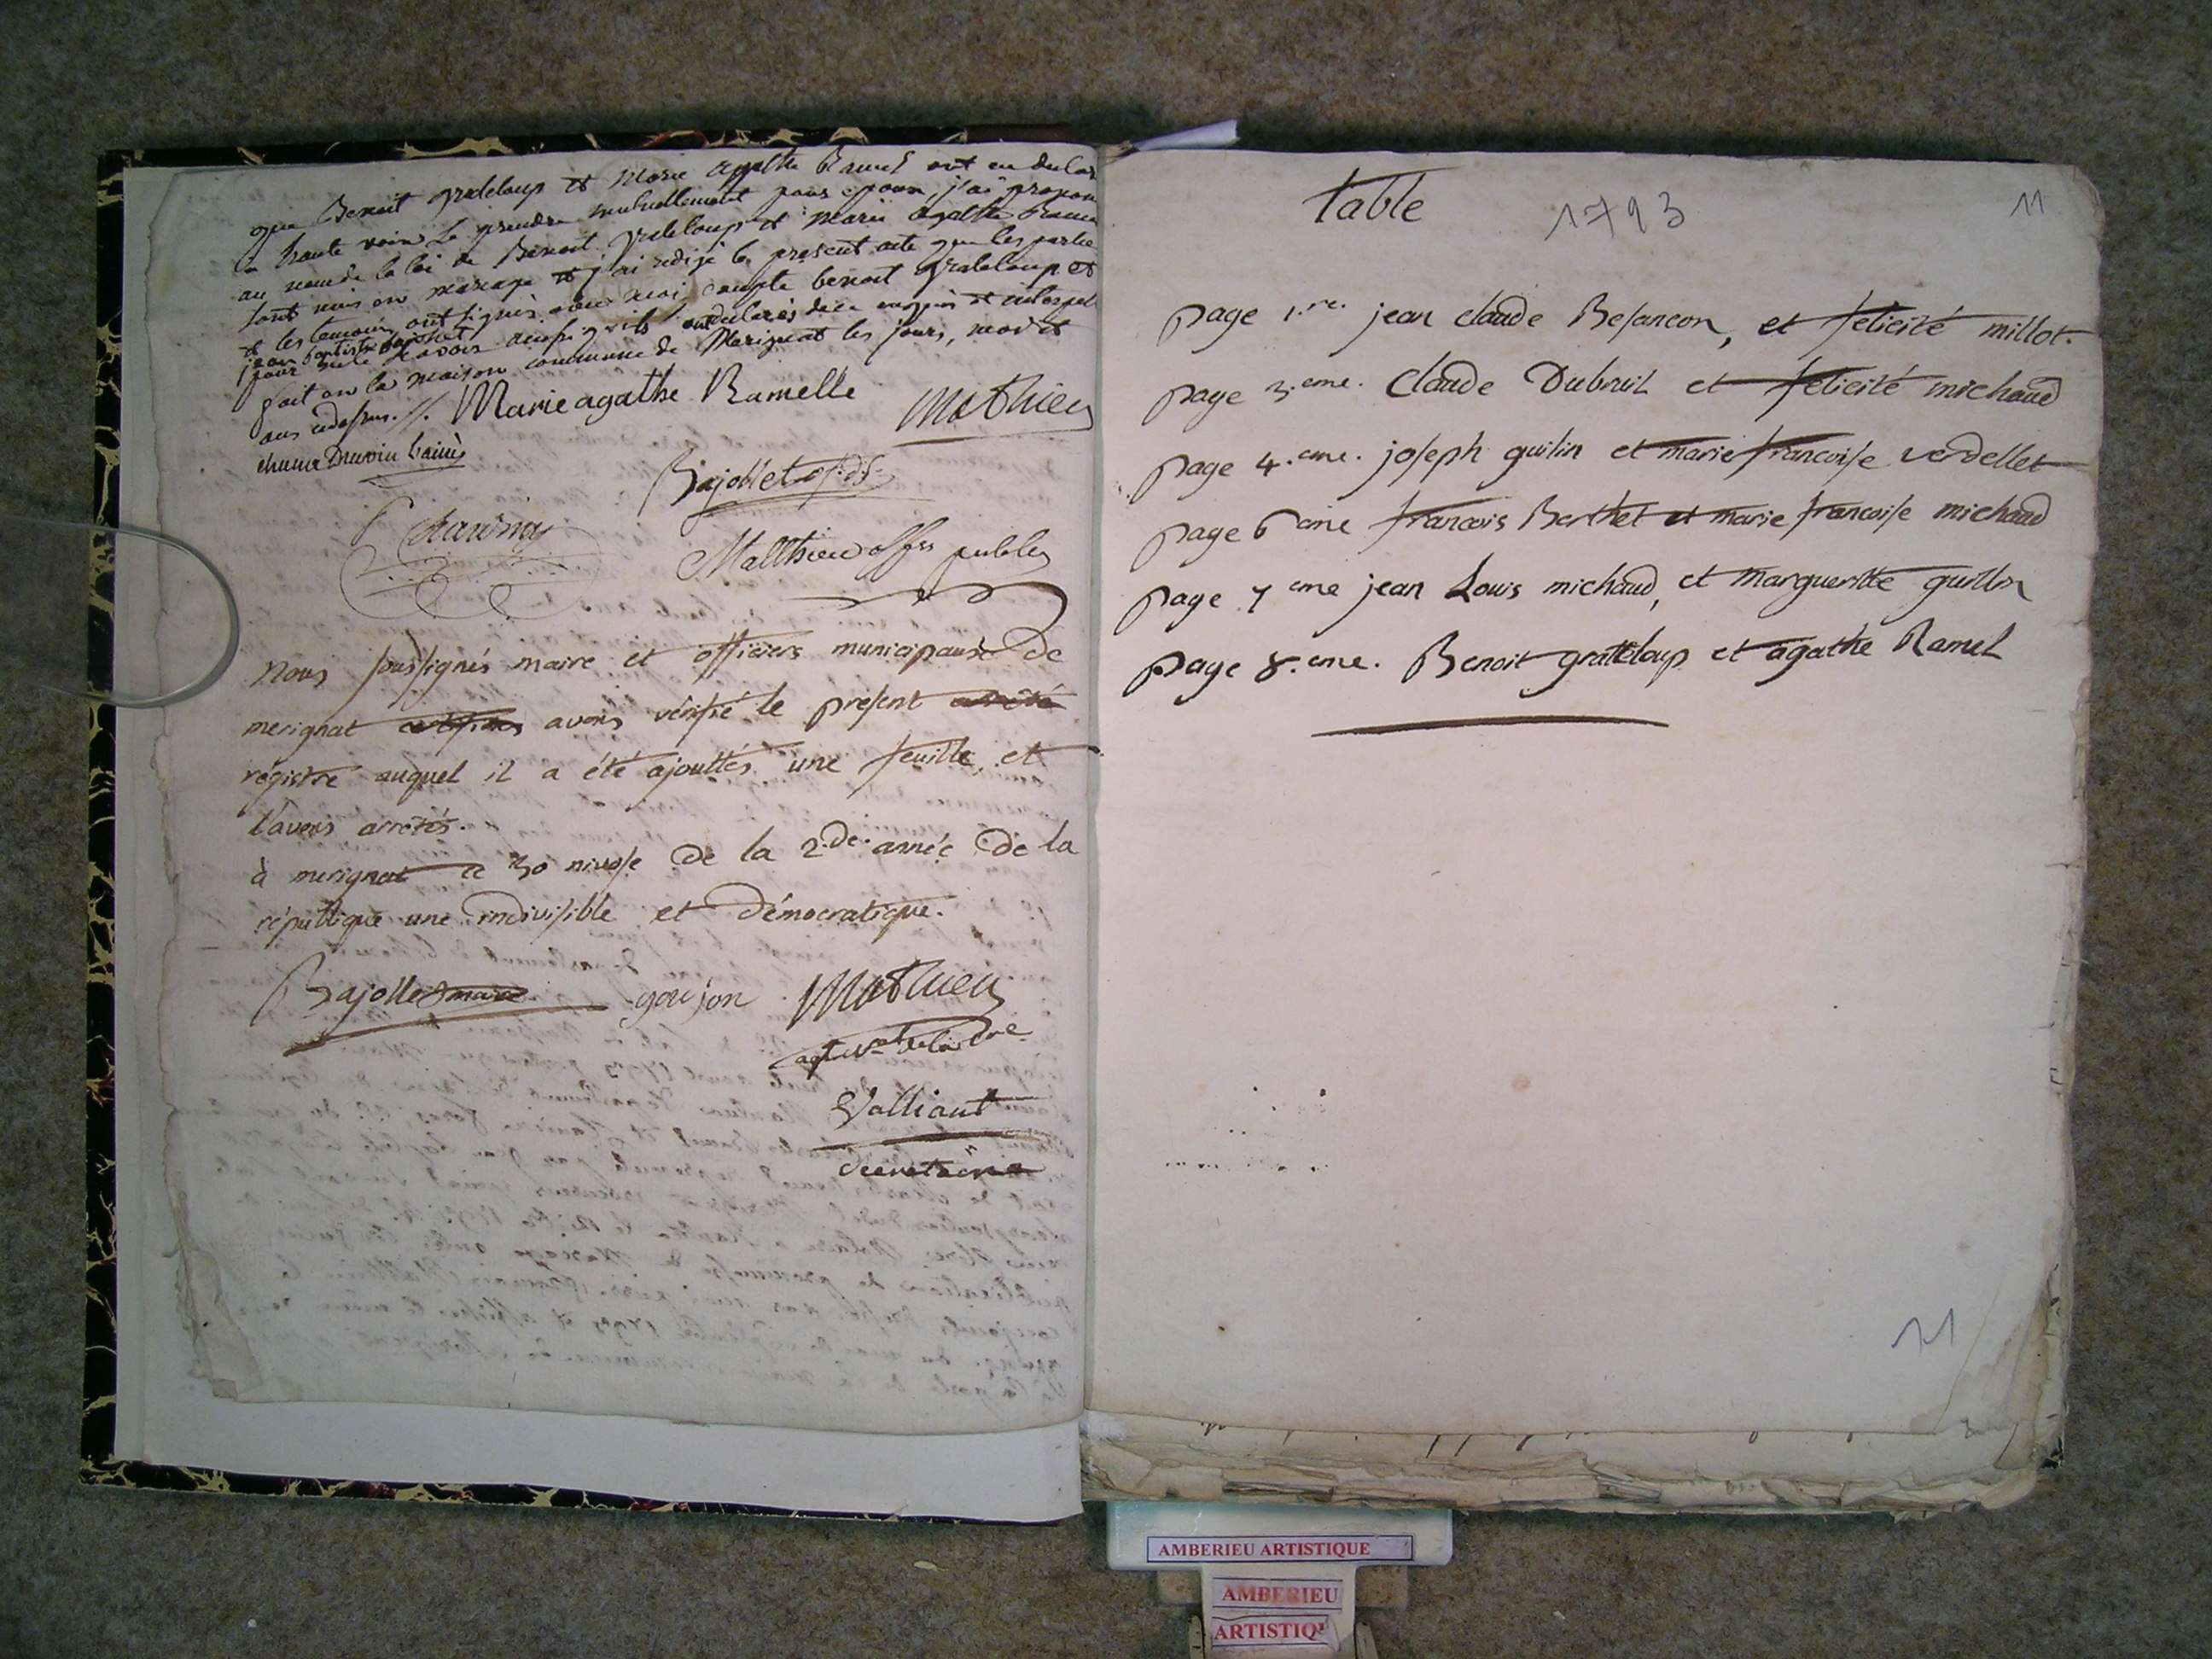 que Benoit grateloup et Marie Agathe Ramel ont eu declaré
a haute voix se prendre mutuellement pour epoux, j'ai prononcé
au nom de la loi que Benoit grateloup et Marie Agathe Ramel
sont unis en mariage et j'ai redigé le present acte que les parties
et les temoins ont signés avec moi excepté benoit grateloup et
jean baptiste bajollet
pour ne le savoir ainsi qu'ils ont declarés de ce enquis et interpellés
fait en la maison commune de Merignat les jours, mois et
ans cidessus.//. Marie agathe Ramelle Mathieu
Bajollet
Matthieu offer public
nous soussignés maire et officiers municipaux de
merignat avons vérifié le present
régistre auquel il a été ajouttés une feuille, et
l'avons arrêtés.
à merignat ce 30 nivose de la 2.de. année de la
république une indivisible et démocratique.
Bajollet maire goujon Mathieu
agt nat de la cne
Valliant
Secretaire
table 1793 11
page 1.re. jean claude Besancon, et felicité millot.
page 3.eme. Claude Dubreuil et felicité michaud
page 4.eme. joseph guilin et marie francoise verdellet
page 6eme francois Berthet et marie francoise michaud
page 7eme jean Louis michaud, et margueritte guillin
page 8.eme. Benoit gratteloup et agathe Ramel
11
AMBERIEU ARTISTIQUE
AMBERIEU
ARTISTIQ